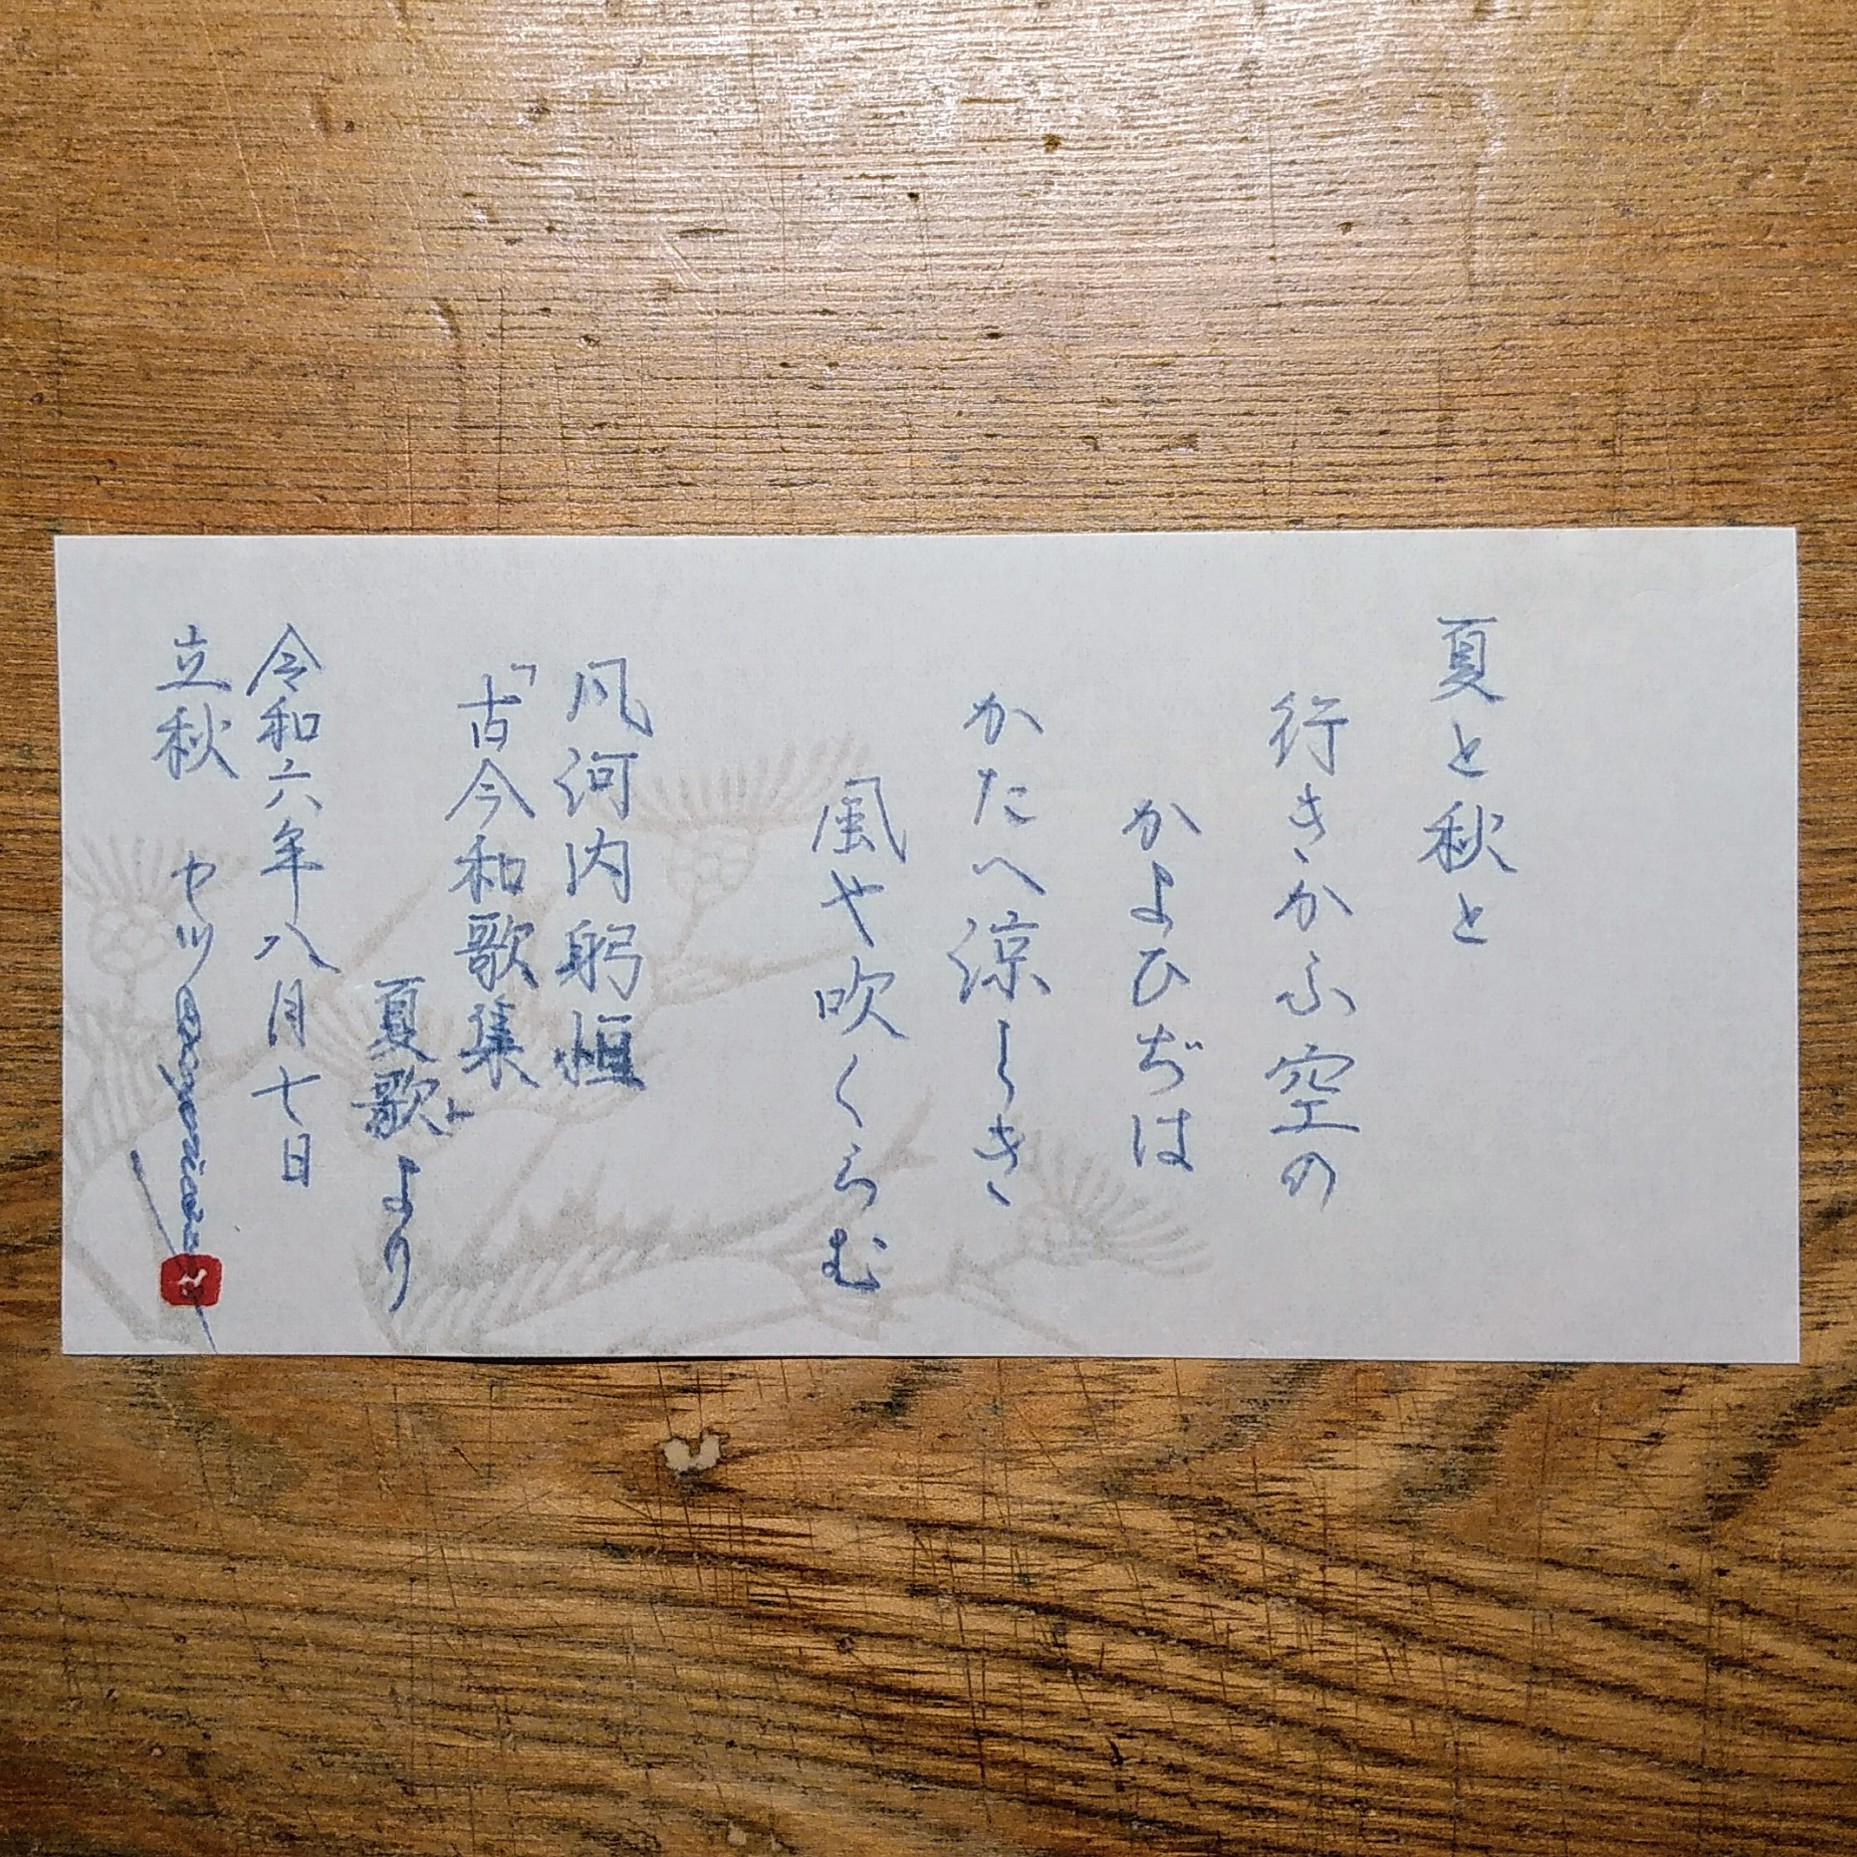 夏と秋と
行きかふ空の
かよひぢは
かたへ涼しき
風や吹くらむ
凡河内躬恒
「古今和歌集
夏歌」より
令和六年八月七日
立秋